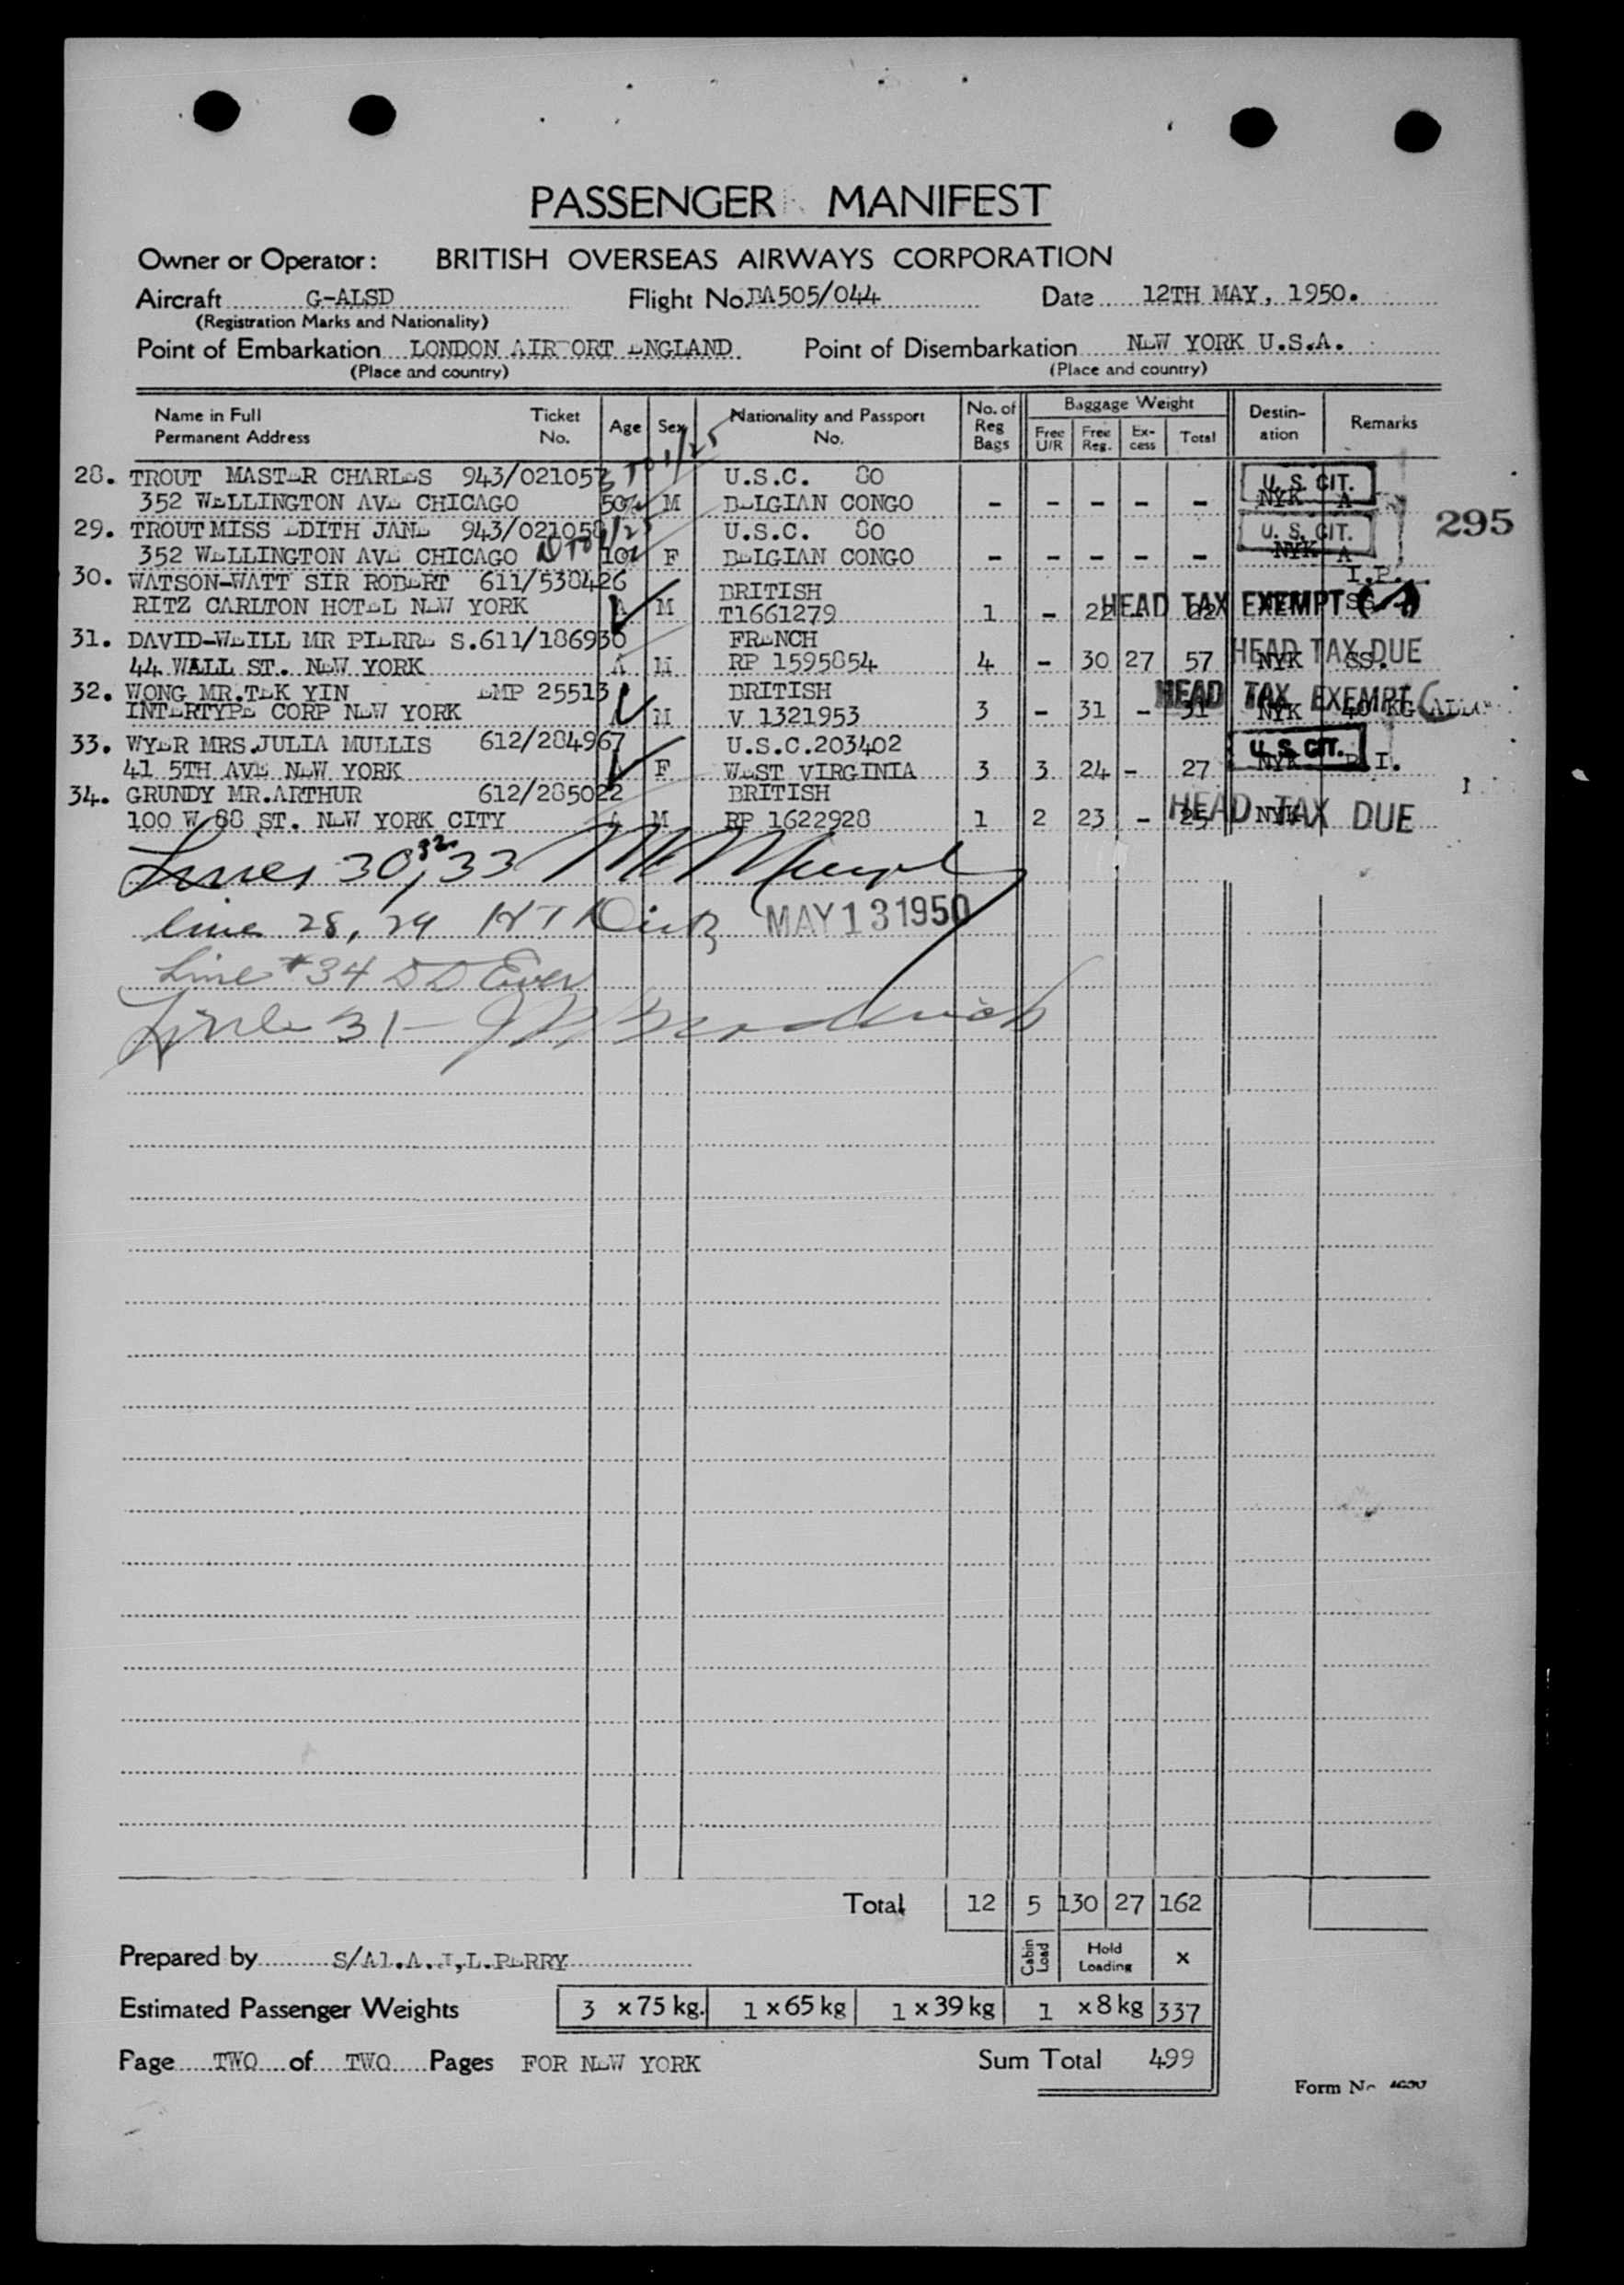 PASSENGER MANIFEST
Owner or Operator: BRITISH OVERSEAS AIRWAYS CORPORATION
Aircraft G-ALSD Flight No. BA505/044 Date 12TH MAY, 1950.
(Registration Marks and Nationality)
Point of Embarkation LONDON AIRPORT ENGLAND Point of Disembarkation NEW YORK U.S.A.
(Place and country) (Place and country)
Name in Full Permanent Address Ticket No. Age Sex Nationality and Passport No. No. of Reg Bags Baggage Weight Free U/R Free Reg. Ex-cess Total Destin-ation Remarks
28. TROUT MASTER CHARLES 943/021057 U.S.C. 80 U. S. CIT.
352 WELLINGTON AVE CHICAGO 50% M BELGIAN CONGO - - - - - NYK A
29. TROUT MISS EDITH JANE 943/021058 U.S.C. 80 U. S. CIT. 295
352 WELLINGTON AVE CHICAGO 10% F BELGIAN CONGO - - - - - NYK A
30. WATSON-WATT SIR ROBERT 611/538426 BRITISH I.P.
RITZ CARLTON HOTEL NEW YORK A M T1661279 1 - 22 22 HEAD TAX EXEMPT SS
31. DAVID-WEILL MR PIERRE S. 611/186930 FRENCH HEAD TAX DUE
44 WALL ST. NEW YORK A M RP 1595854 4 - 30 27 57 NYK SS.
32. WONG MR. TEK YIN EMP 25513 BRITISH HEAD TAX EXEMPT
INTERTYPE CORP NEW YORK A M V 1321953 3 - 31 - 31 NYK 40 KG
33. WYER MRS. JULIA MULLIS 612/284967 U.S.C. 203402 U. S. CIT.
41 5TH AVE NEW YORK A F WEST VIRGINIA 3 3 24 - 27 NYK I.
34. GRUNDY MR. ARTHUR 612/285022 BRITISH HEAD TAX DUE
100 W 88 ST. NEW YORK CITY A M RP 1622928 1 2 23 - 25 NYK
Lines 30, 32, 33
line 28, 29 MAY 13 1950
Line #34
Line 31 -
Total 12 5 130 27 162
Cabin Load Hold Loading x
Prepared by S/Al.A.J.L.PERRY
Estimated Passenger Weights 3 x 75 kg. 1 x 65 kg 1 x 39 kg 1 x 8 kg 337
Page TWO of TWO Pages FOR NEW YORK Sum Total 499
Form No